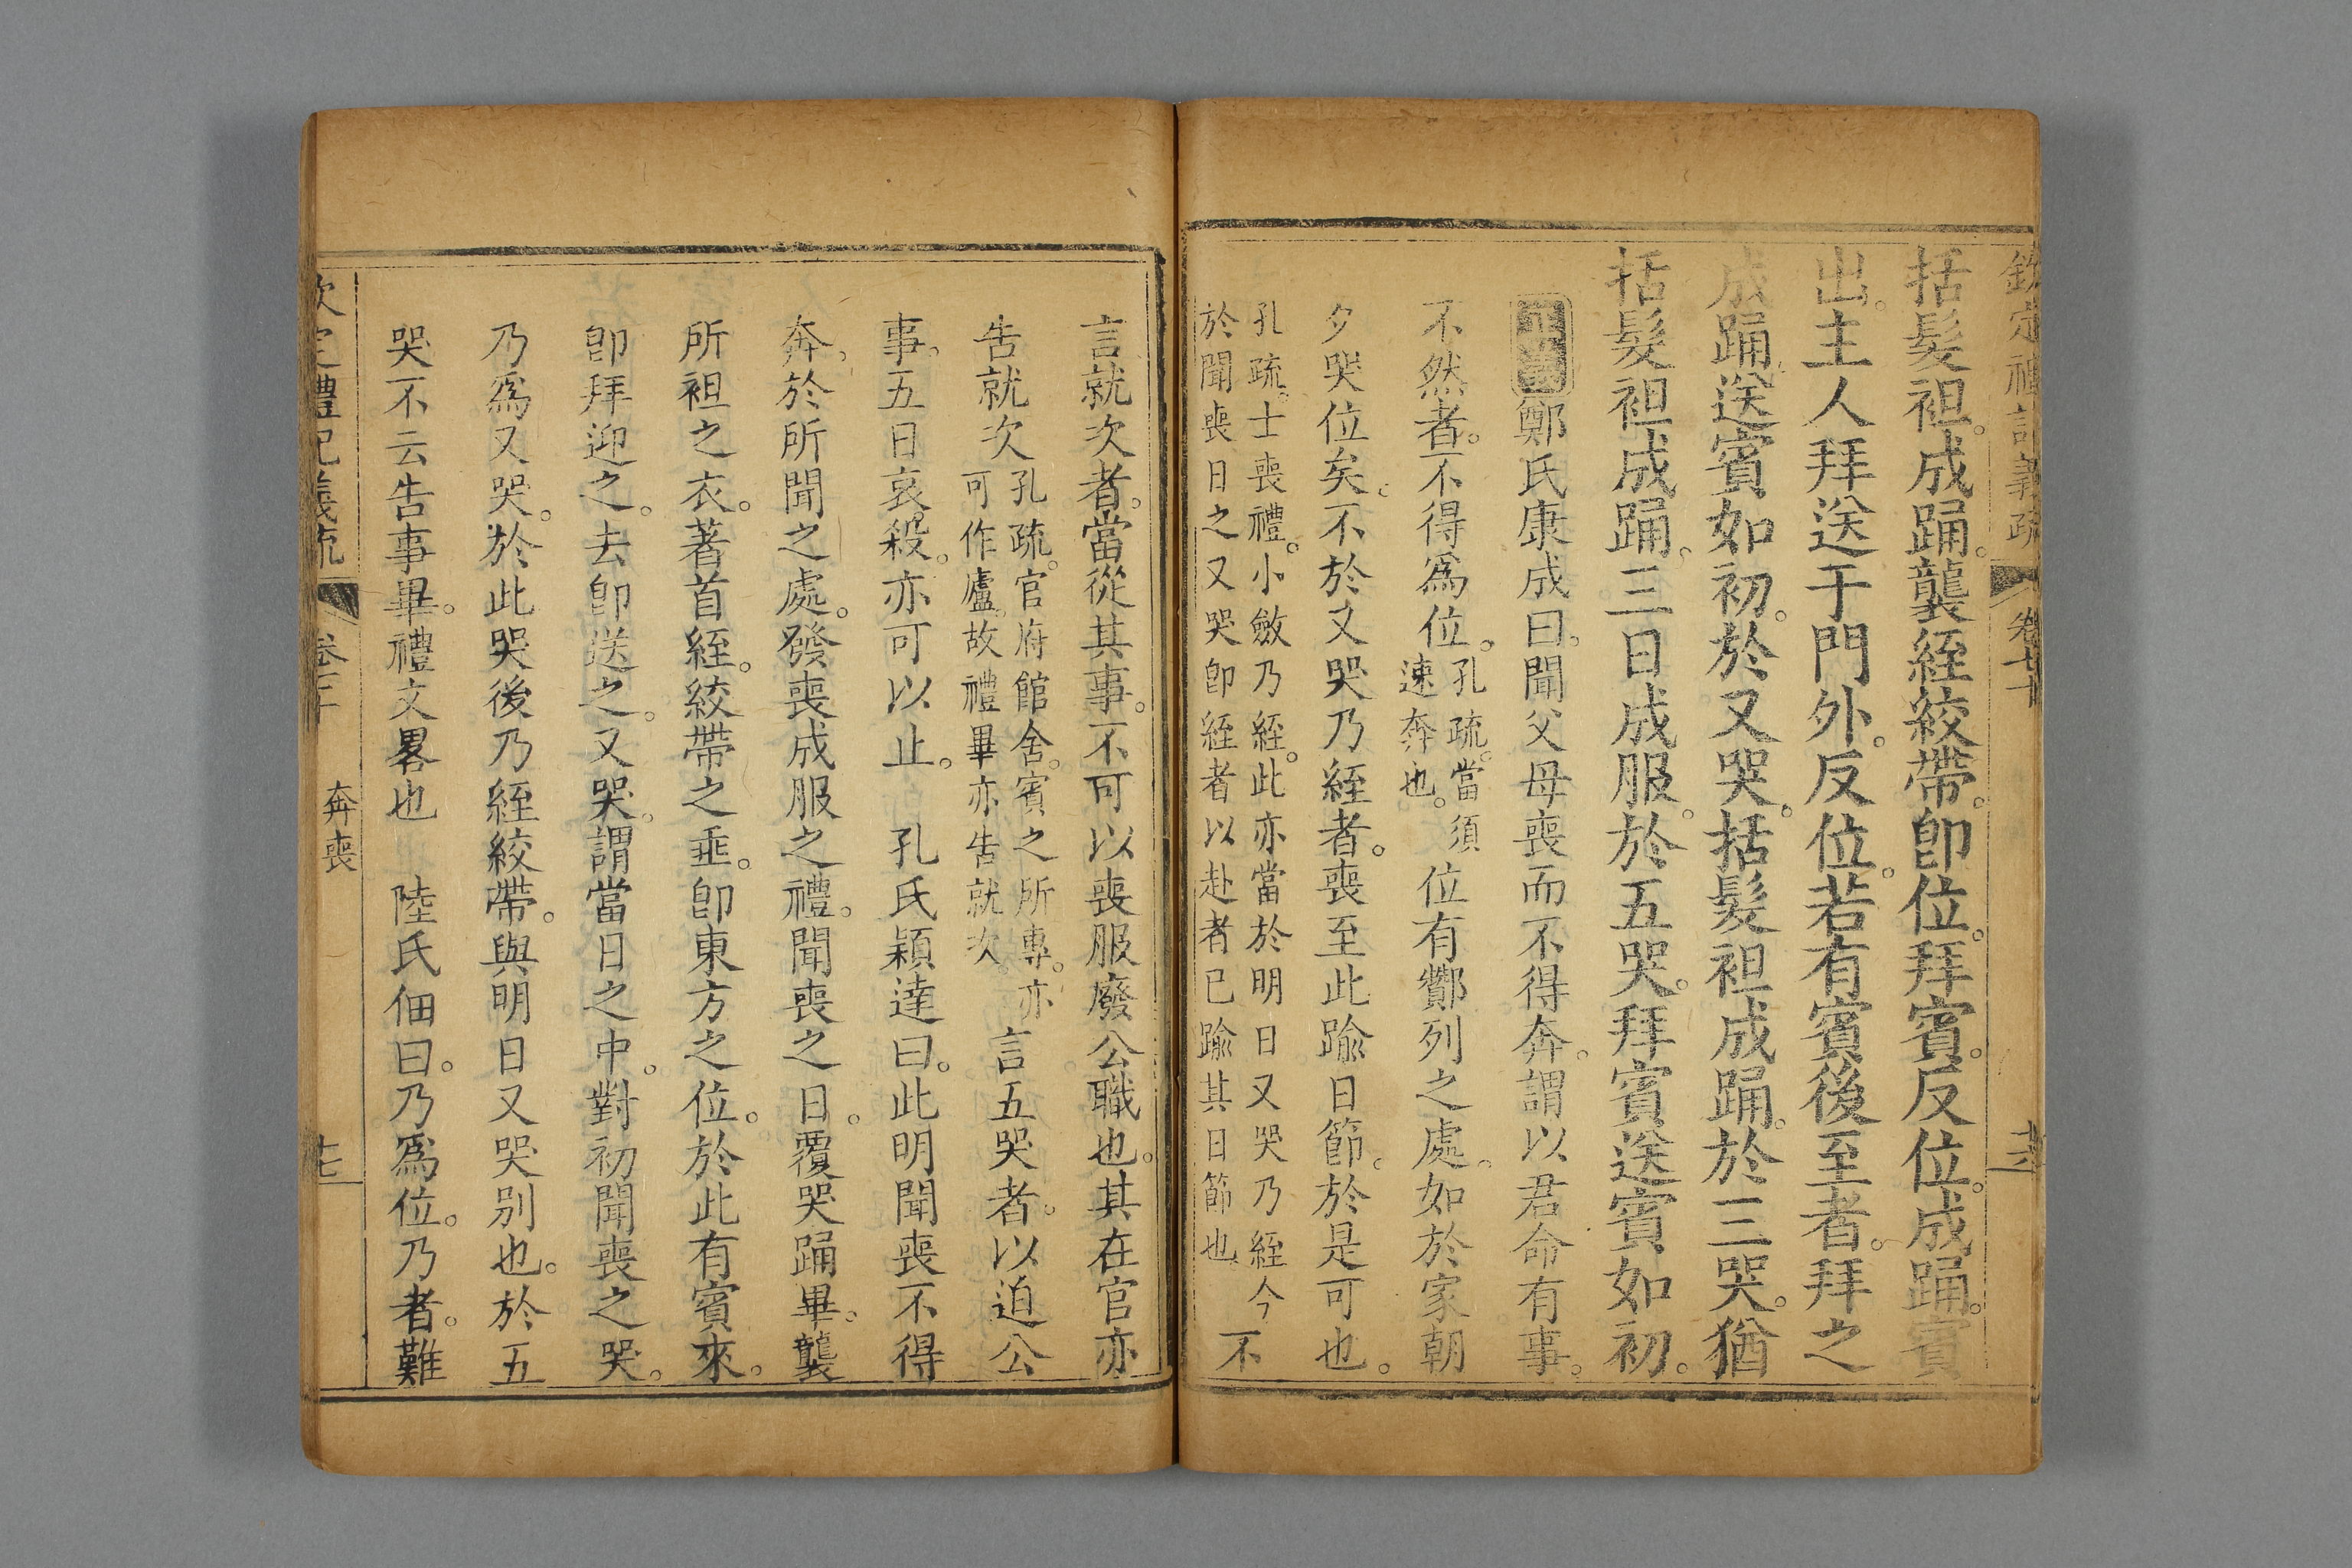 欽定禮記義疏 卷七十 十六
括髮袒。成踊。襲絰絞帶。卽位。拜賓。反位。成踊。賓
出。主人拜送于門外。反位。若有賓後至者。拜之
成踊。送賓如初。於又哭。括髮袒成踊。於三哭。猶
括髮袒成踊。三日成服。於五哭。拜賓送賓如初。
正義鄭氏康成曰。聞父母喪而不得奔。謂以君命有事。
不然者。不得爲位。孔疏。當須速奔也。位有酇列之處。如於家朝
夕哭位矣。不於又哭乃絰者。喪至此踰日節。於是可也。
孔疏。士喪禮。小斂乃絰。此亦當於明日又哭乃絰今
於聞喪日之又哭卽絰者以赴者已踰其日節也 不
言就次者。當從其事。不可以喪服廢公職也。其在官亦
告就次孔疏。官府館舍。賓之所專。亦可作廬。故禮畢亦告就次。言五哭者。以迫公
事。五日哀殺。亦可以止。 孔氏穎達曰。此明聞喪不得
奔。於所聞之處。發喪成服之禮。聞喪之日。覆哭踊畢。襲
所袒之衣。著首絰。絞帶之垂。卽東方之位。於此有賓來。
卽拜迎之。去卽送之。又哭。謂當日之中。對初聞喪之哭。
乃爲又哭。於此哭後乃絰絞帶。與明日又哭別也。於五
哭不云告事畢。禮文畧也 陸氏佃曰。乃爲位。乃者。難
欽定禮記義疏 卷七十 奔喪 十七